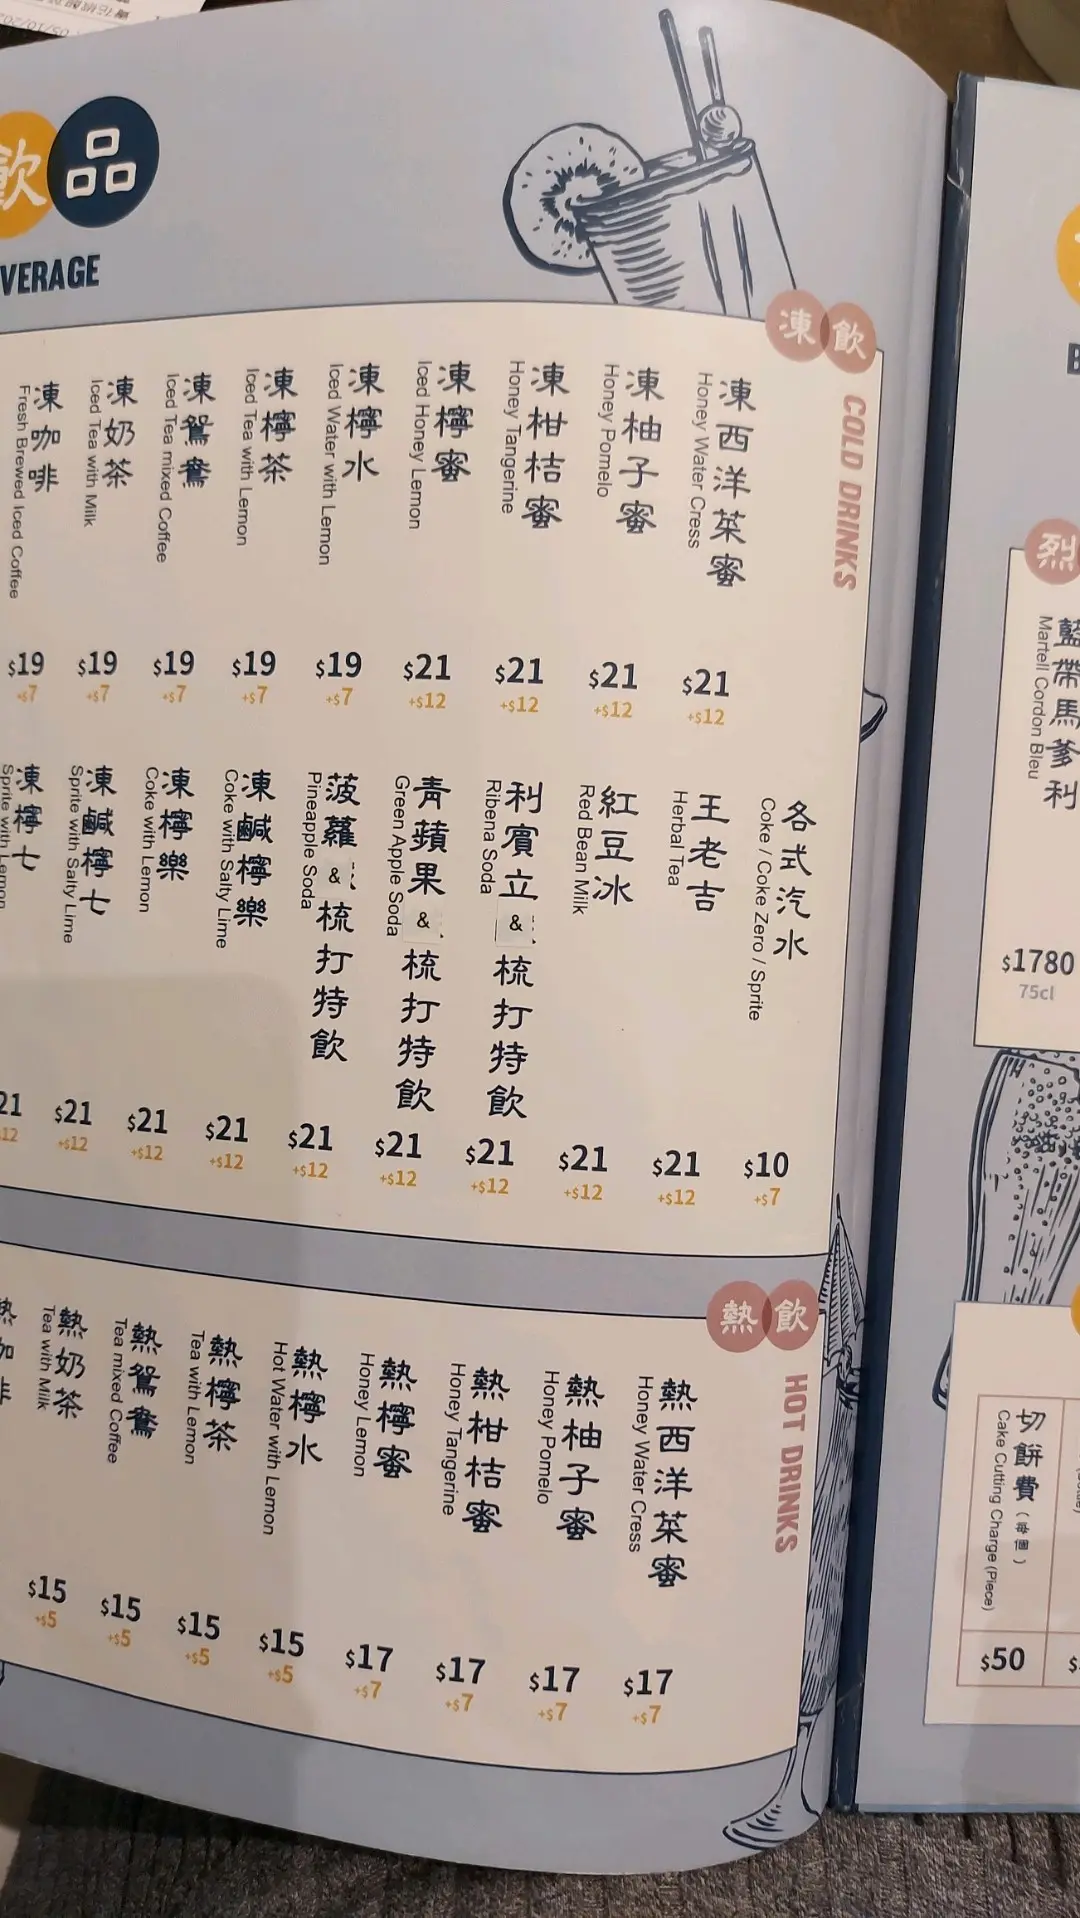 飲品
VERAGE
凍飲
COLD DRINKS
凍西洋菜蜜
Honey Water Cress
$21
+$12
凍柚子蜜
Honey Pomelo
$21
+$12
凍柑桔蜜
Honey Tangerine
$21
+$12
凍檸蜜
Iced Honey Lemon
$21
+$12
凍檸水
Iced Water with Lemon
$19
+$7
凍檸茶
Iced Tea with Lemon
$19
+$7
凍鴛鴦
Iced Tea mixed Coffee
$19
+$7
凍奶茶
Iced Tea with Milk
$19
+$7
凍咖啡
Fresh Brewed Iced Coffee
$19
+$7
各式汽水
Coke / Coke Zero / Sprite
$10
+$7
王老吉
Herbal Tea
$21
+$12
紅豆冰
Red Bean Milk
$21
+$12
利賓立 & 梳打特飲
Ribena Soda
$21
+$12
青蘋果 & 梳打特飲
Green Apple Soda
$21
+$12
菠蘿 & 梳打特飲
Pineapple Soda
$21
+$12
凍鹹檸樂
Coke with Salty Lime
$21
+$12
凍檸樂
Coke with Lemon
$21
+$12
凍鹹檸七
Sprite with Salty Lime
$21
+$12
凍檸七
Sprite with Lemon
21
12
熱飲
HOT DRINKS
熱西洋菜蜜
Honey Water Cress
$17
+$7
熱柚子蜜
Honey Pomelo
$17
+$7
熱柑桔蜜
Honey Tangerine
$17
+$7
熱檸蜜
Honey Lemon
$17
+$7
熱檸水
Hot Water with Lemon
$15
+$5
熱檸茶
Tea with Lemon
$15
+$5
熱鴛鴦
Tea mixed Coffee
$15
+$5
熱奶茶
Tea with Milk
$15
+$5
熱咖啡
B
烈
藍帶馬爹利
Martell Cordon Bleu
$1780
75cl
切餅費（每個）
Cake Cutting Charge (Piece)
$50